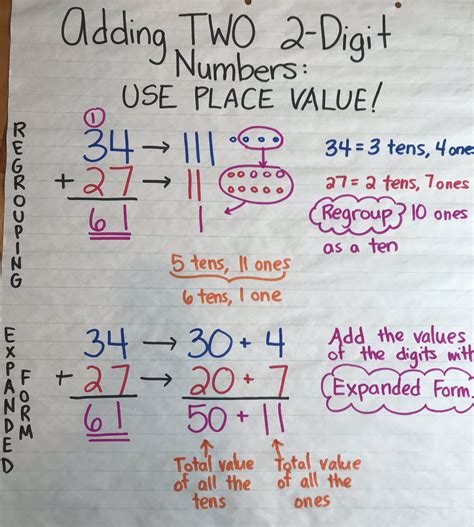 adding TWO 2-Digit
Numbers:
USE PLACE VALUE!
REGROUPING
1
34 → 111
+ 27 → 11
61
1
34 = 3 tens, 4 ones
27 = 2 tens, 7 ones
Regroup 10 ones
as a ten
5 tens, 11 ones
6 tens, 1 one
EXPANDED
FORM
34 → 30 + 4
+ 27 → 20 + 7
61 50 + 11
Add the values
of the digits with
Expanded Form.
Total value
of all the
tens
Total value
of all the
ones